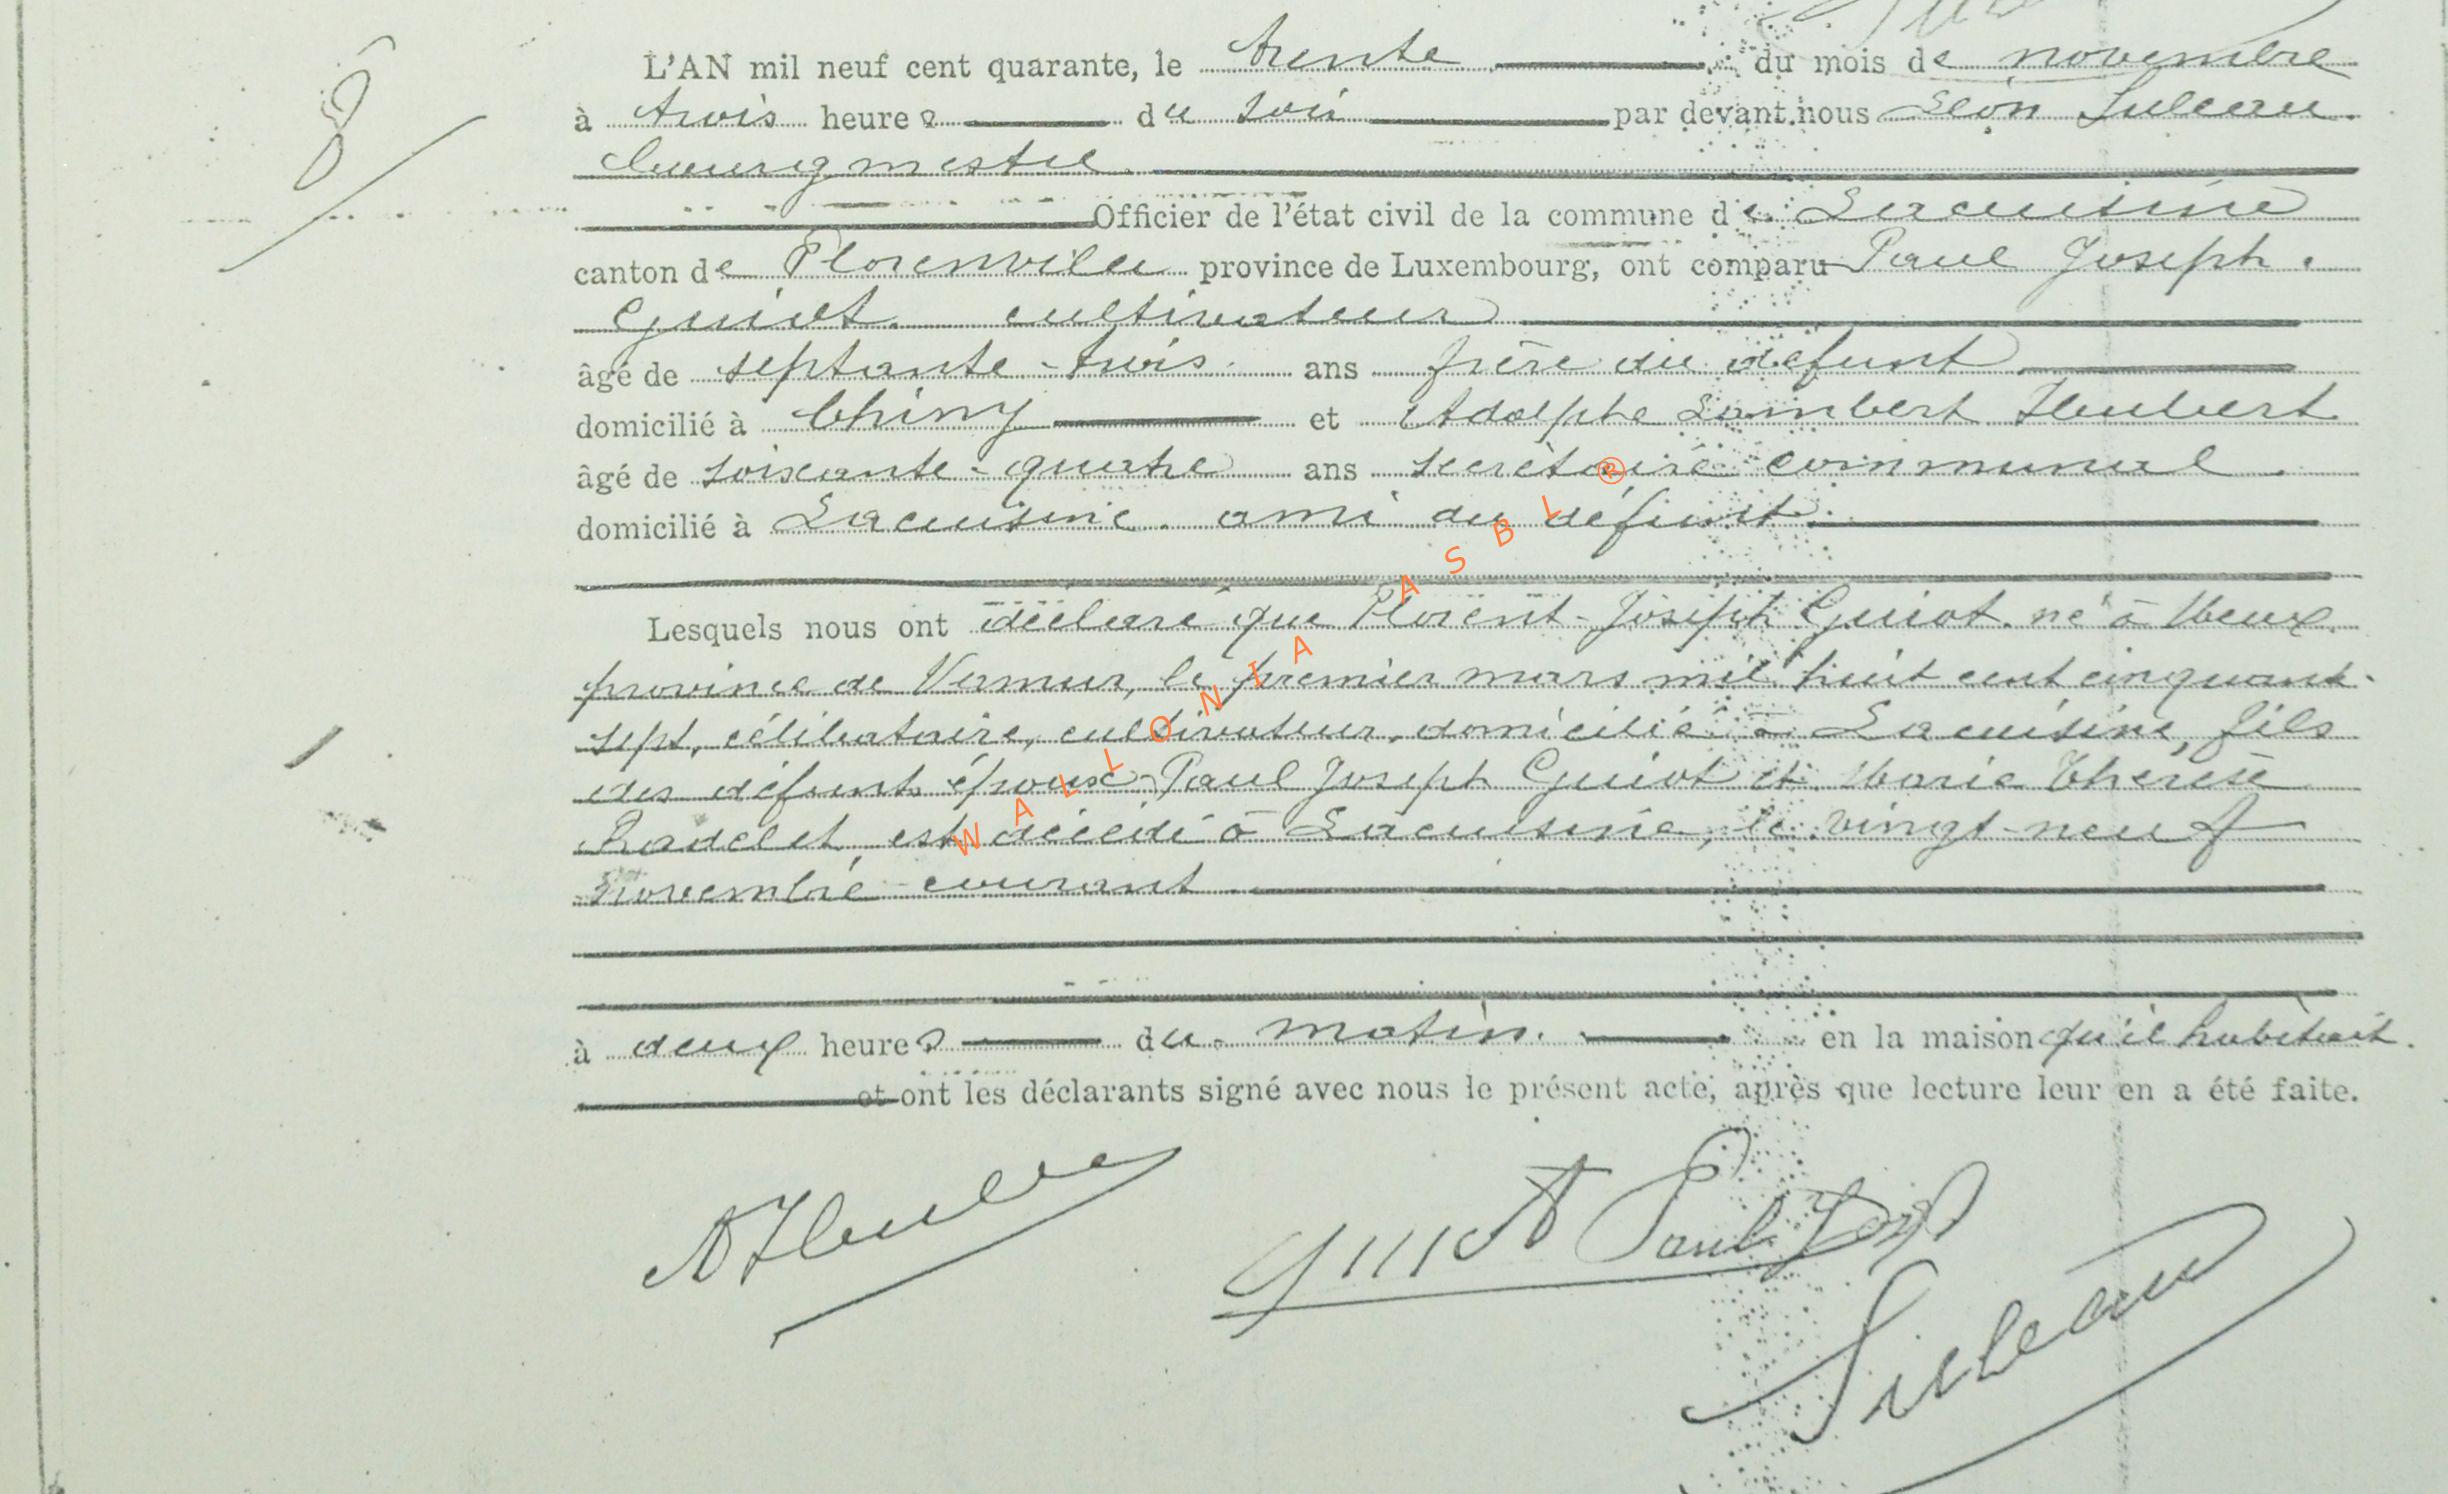 8
L'AN mil neuf cent quarante, le trente du mois de novembre
à trois heures du soir par devant nous Léon Suleau
bourgmestre
Officier de l'état civil de la commune de Lacuisine
canton de Florenville province de Luxembourg, ont comparu Paul Joseph
Guiot cultivateur
âgé de septante-trois ans frère du défunt
domicilié à Chiny et Adolphe Lambert Heubert
âgé de soixante-quatre ans secrétaire communal
domicilié à Lacuisine ami du défunt
Lesquels nous ont déclaré que Florent-Joseph Guiot né à Meux
province de Namur, le premier mars mil huit cent cinquante-
sept, célibataire, cultivateur, domicilié à Lacuisine, fils
des défunts époux Paul Joseph Guiot et Marie Thérèse
Radelet, est décédé à Lacuisine, le vingt-neuf
novembre courant
à deux heures du matin en la maison qu'il habitait.
et ont les déclarants signé avec nous le présent acte, après que lecture leur en a été faite.
Guiot Paul Josph
Suleau
WALLONIA ASBL ®